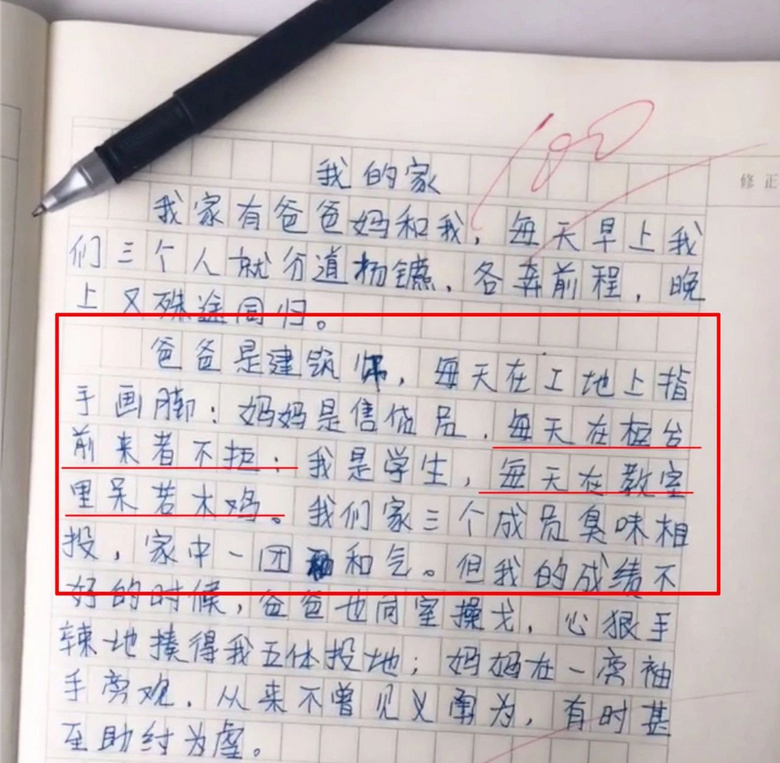 100
修正
我的家
我家有爸爸妈和我,每天早上我
们三个人就分道扬镳,各奔前程,晚
上又殊途同归。
爸爸是建筑师,每天在工地上指
手画脚;妈妈是售货员,每天在柜台
前来者不拒;我是学生,每天在教室
里呆若木鸡。我们家三个成员臭味相
投,家中一团和气。但我的成绩不
好的时候,爸爸也同室操戈,心狠手
辣地揍得我五体投地;妈妈在一旁袖
手旁观,从来不曾见义勇为,有时甚
至助纣为虐。